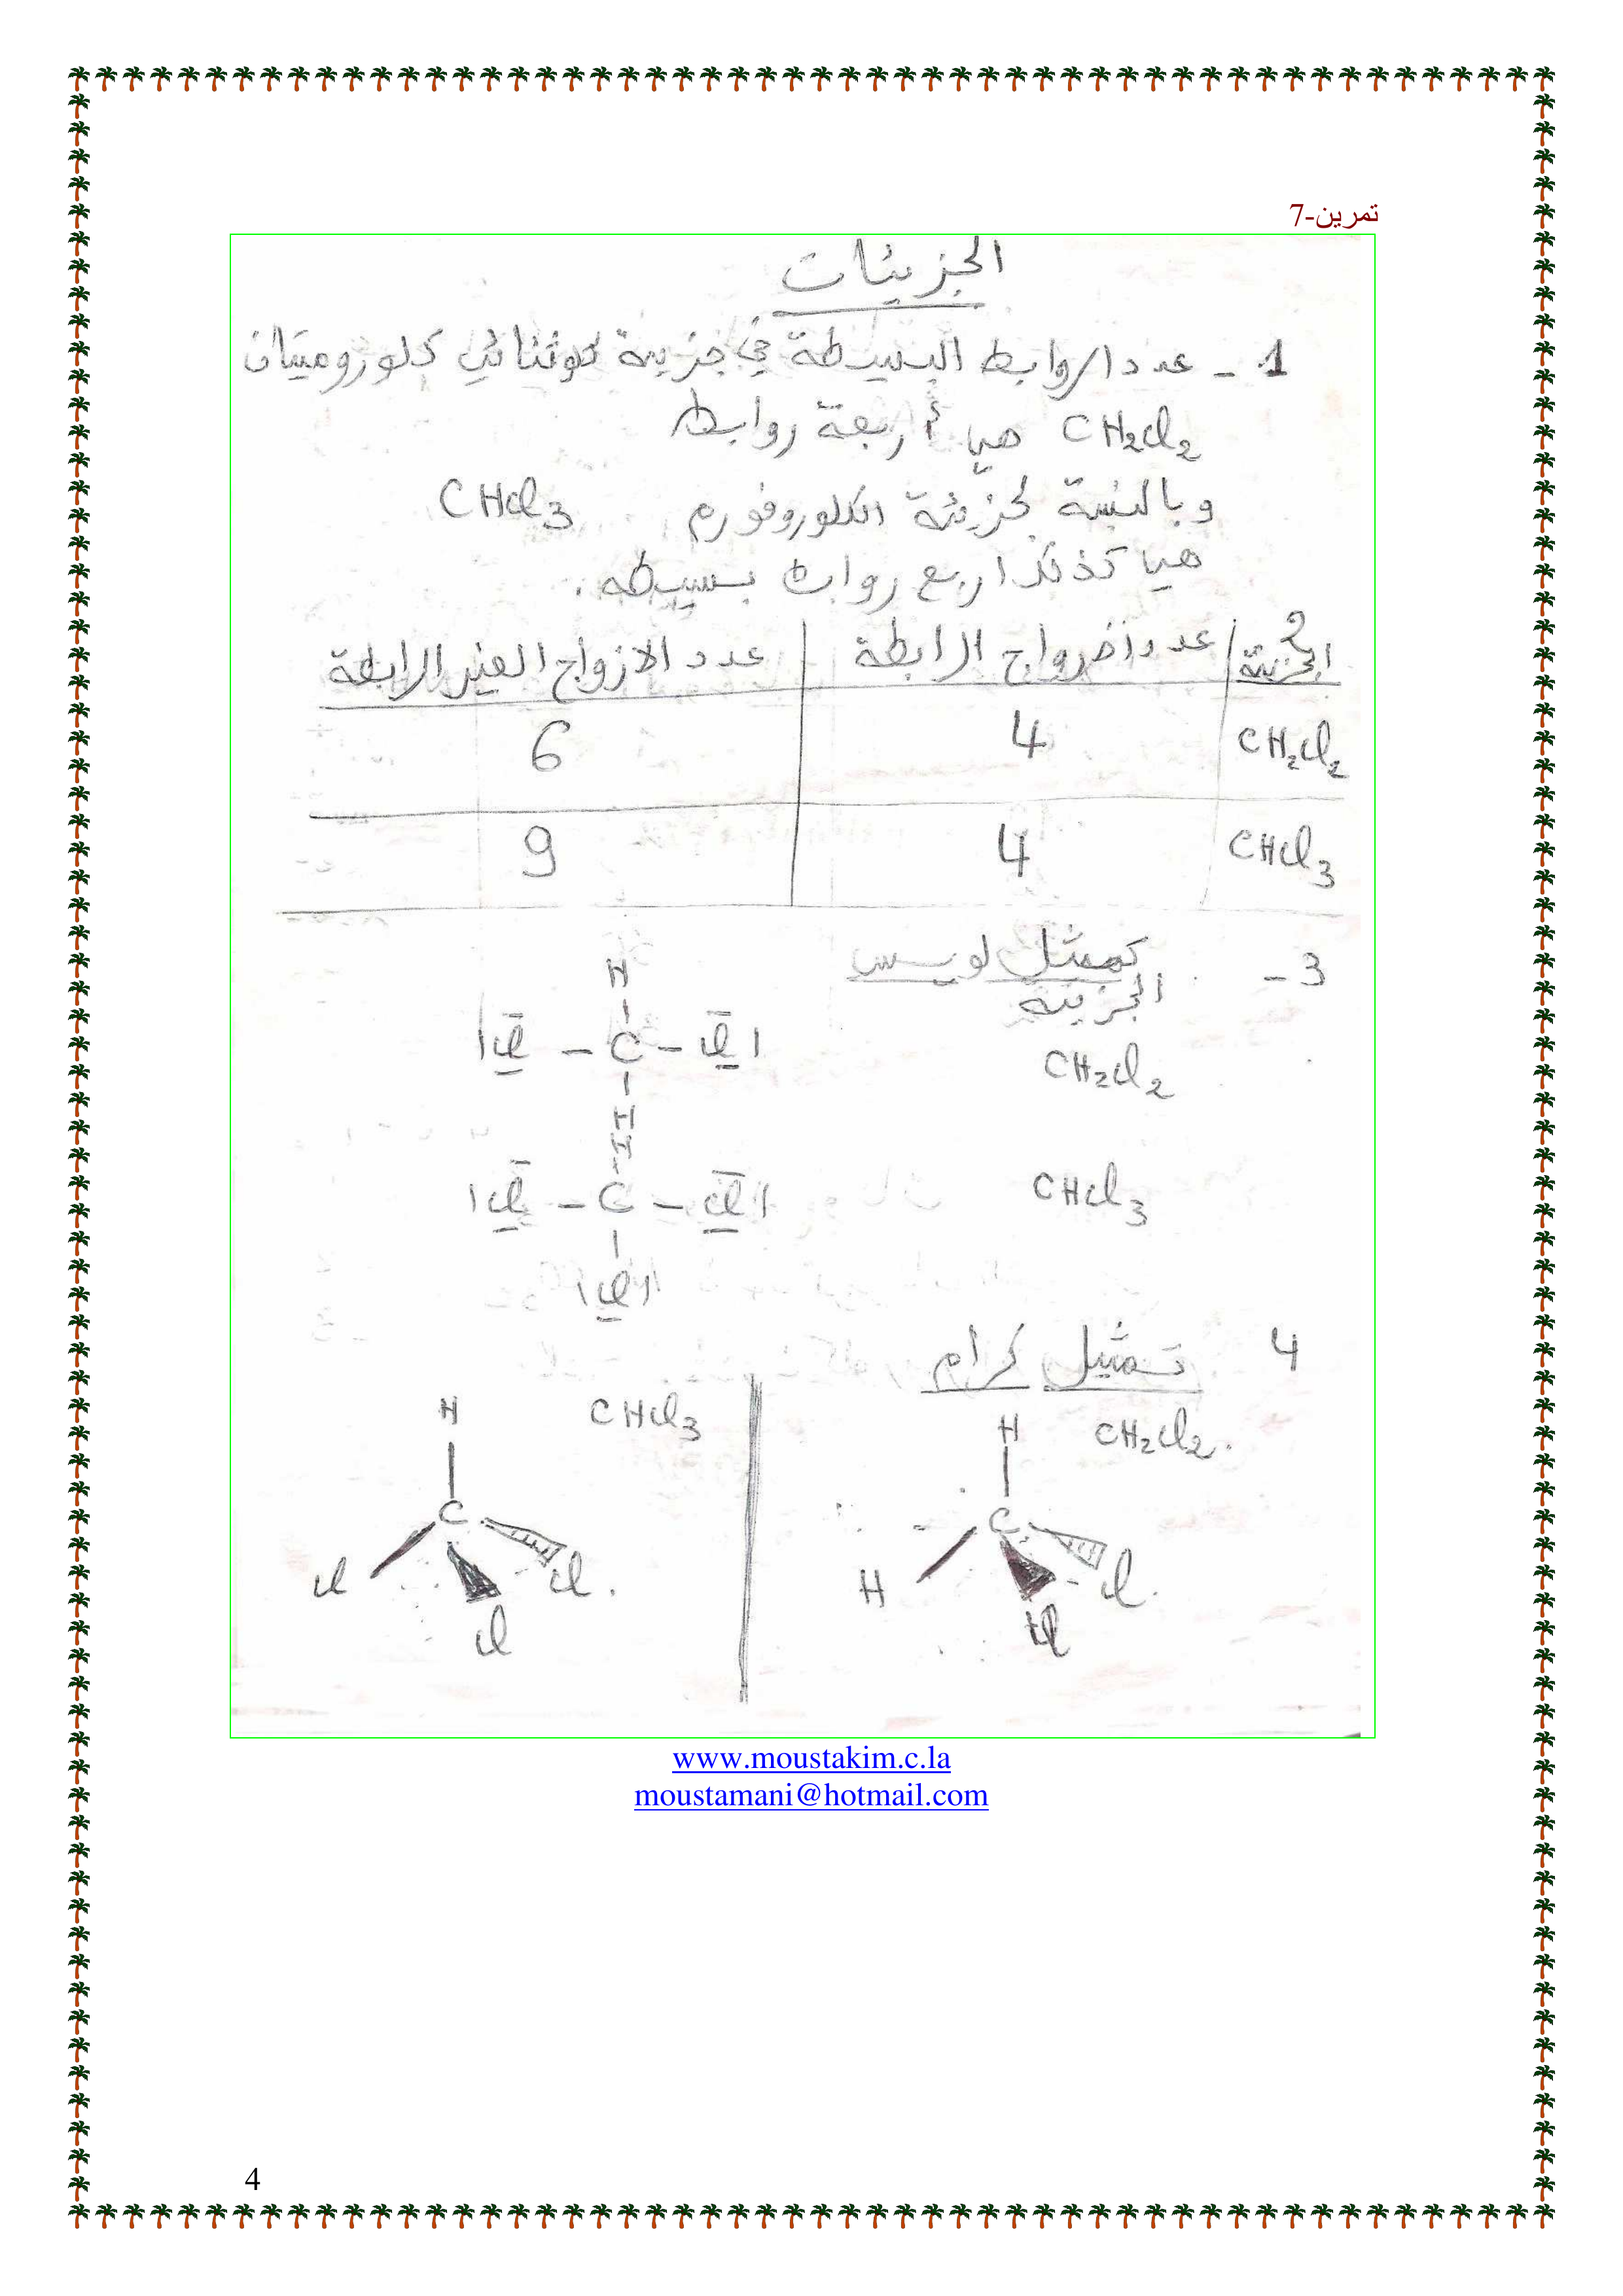 تمرين-7
الجزيئات
1 - عدد الروابط البسيطة في جزيئة ثنائي كلوروميتان
CH₂Cl₂ هي أربعة روابط
وبالنسبة لجزيئة الكلوروفورم CHCl₃
هيا كذلك اربع روابط بسيطه .
2
الجزيئة عدد أزواج الرابطة عدد الازواج الغير الرابطة
CH₂Cl₂ 4 6
CHCl₃ 4 9
3 - تمثيل لويس
الجزيئة
H
CH₂Cl₂ Cl - C - Cl
H
H
CHCl₃ Cl - C - Cl
Cl
4 تمثيل كرام
CH₂Cl₂. CHCl₃
H H
C C
H Cl. Cl Cl.
Cl Cl
www.moustakim.c.la
moustamani@hotmail.com
4